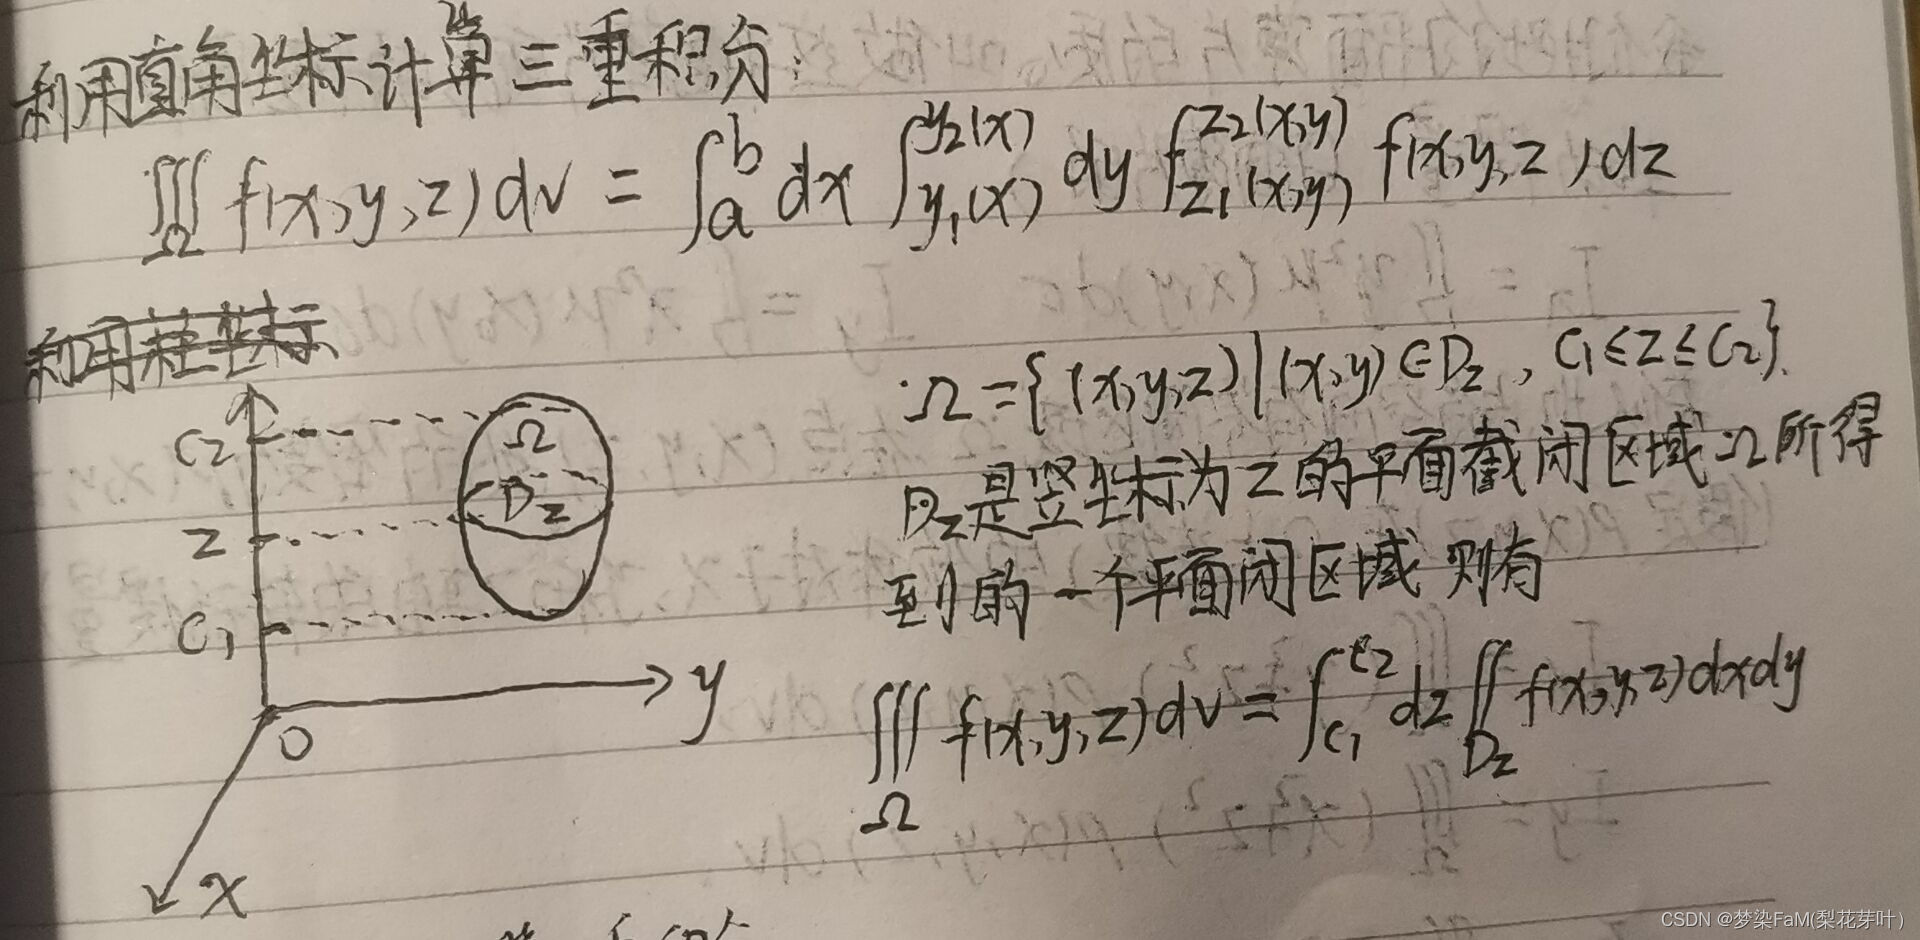 利用直角坐标计算三重积分:
∭_Ω f(x,y,z)dv = ∫_a^b dx ∫_{y₁(x)}^{y₂(x)} dy ∫_{z₁(x,y)}^{z₂(x,y)} f(x,y,z)dz
利用柱坐标
C₂
Ω
D_z
z
C₁
O
y
x
Ω={(x,y,z)|(x,y)∈D_z, C₁≤z≤C₂}.
D_z是竖坐标为z的平面截闭区域Ω所得
到的一个平面闭区域 则有
∭_Ω f(x,y,z)dv = ∫_{C₁}^{C₂} dz ∬_{D_z} f(x,y,z)dxdy
CSDN @梦染FaM(梨花芽叶)